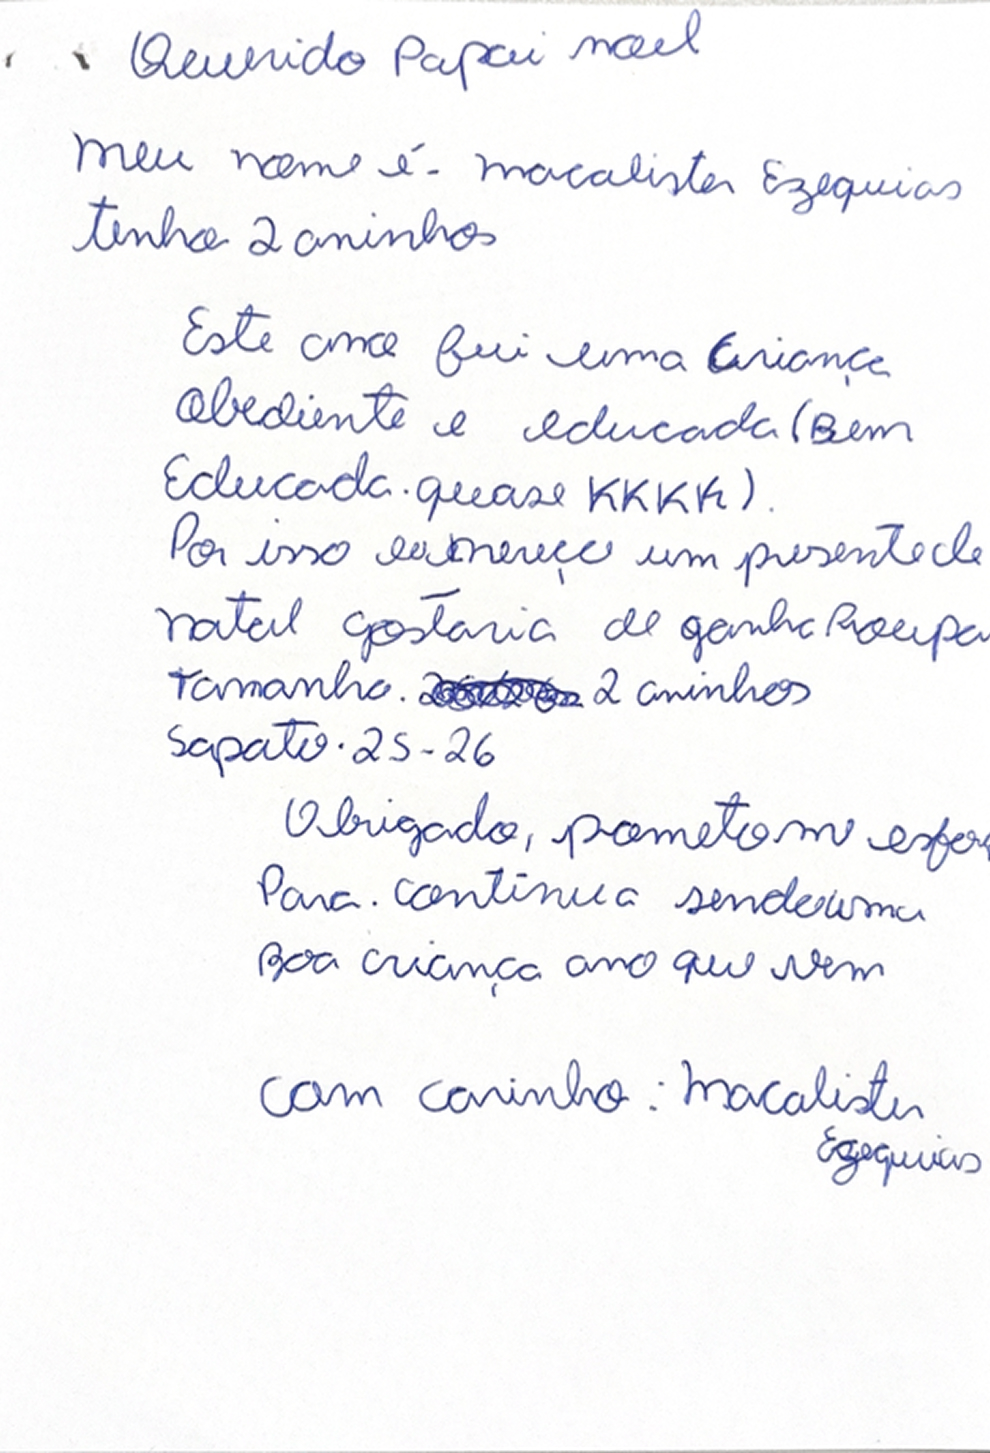 Querido Papai noel
Meu nome é - Macalister Ezequias
tenho 2 aninhos
Este ano fui uma Criança
Obediente e educada (Bem
Educada. quase KKKK).
Por isso eu mereço um presente de
natal gostaria de ganha Roupa
Tamanho. 2 aninhos
Sapato. 25-26
Obrigado, prometo me esforç
Para. continua sendo uma
Boa criança ano que vem
Com carinho: Macalister
Ezequias